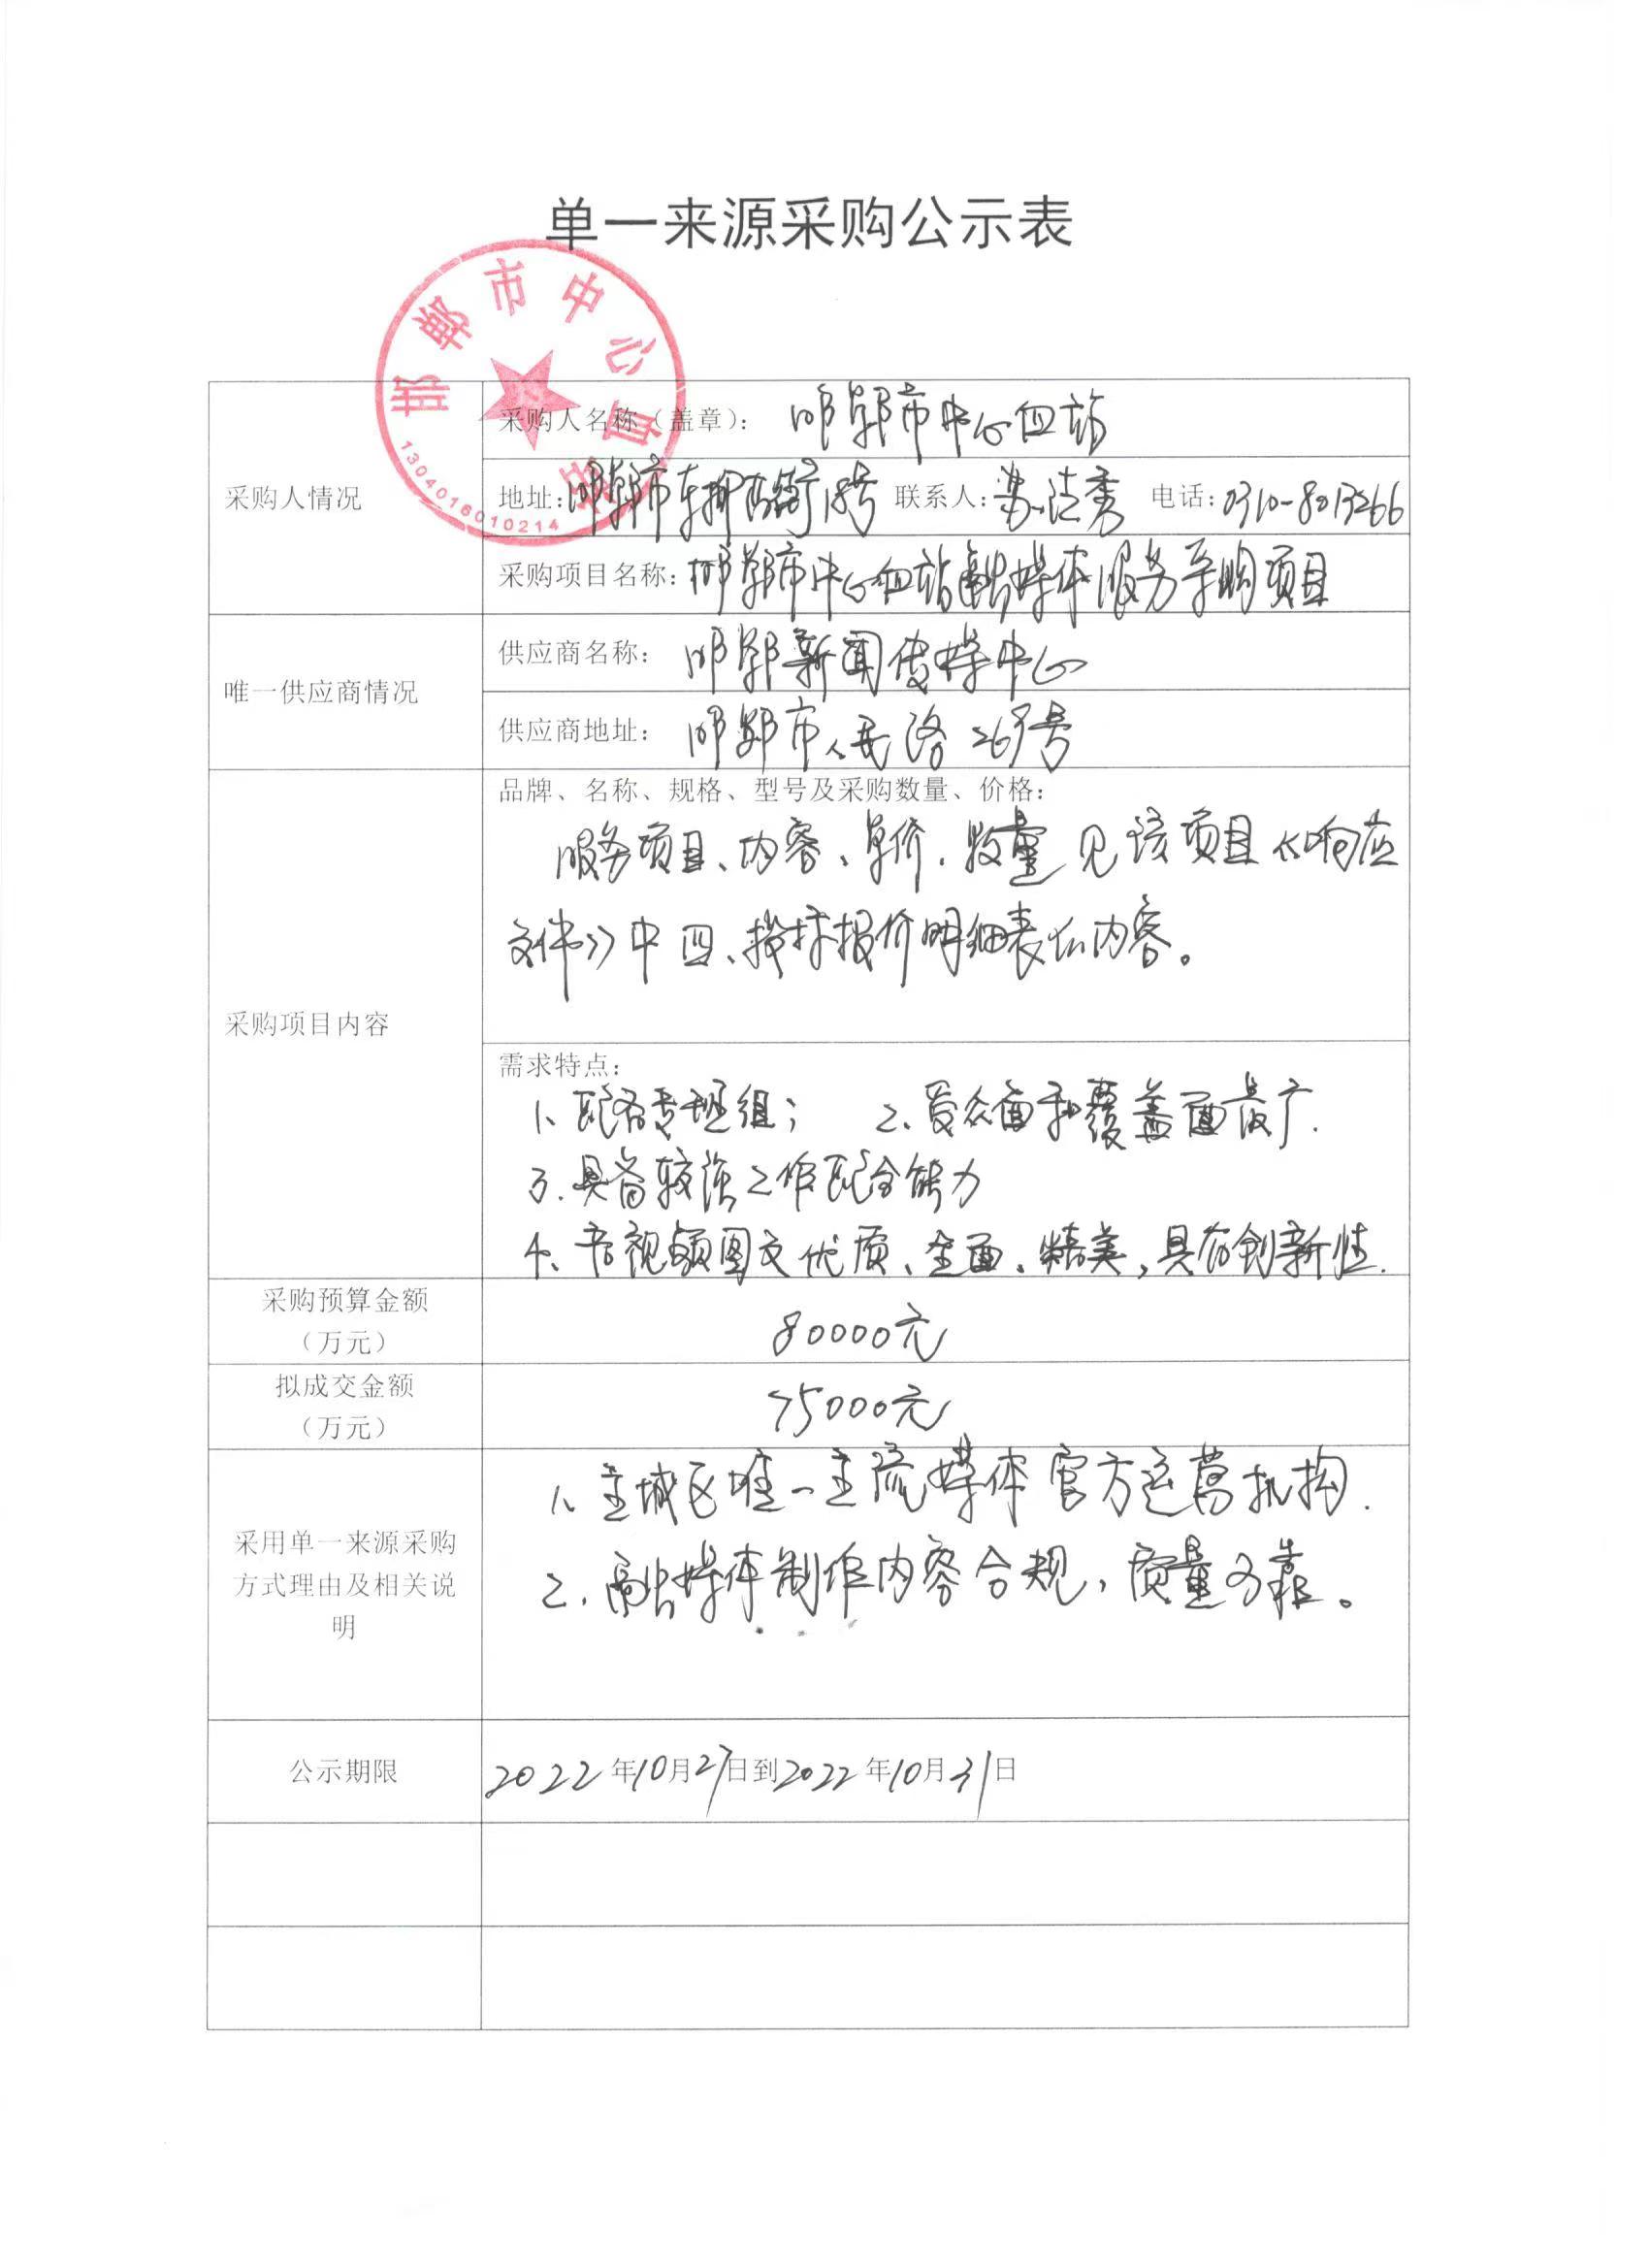 单一来源采购公示表
邯郸市中心血站
1304016010214
采购人情况
采购人名称（盖章）： 邯郸市中心血站
地址：邯郸市东柳西街18号 联系人： 电话：0310-8013266
采购项目名称：邯郸市中心血站融媒体服务采购项目
唯一供应商情况
供应商名称： 邯郸新闻传媒中心
供应商地址： 邯郸市人民路269号
采购项目内容
品牌、名称、规格、型号及采购数量、价格：
服务项目、内容、单价、数量见该项目《响应
文件》中四、投标报价明细表的内容。
需求特点：
1、配备专班组； 2、受众面和覆盖面最广.
3.具备较强工作配合能力
4、音视频图文优质、全面、精美，具有创新性.
采购预算金额
（万元）
80000元
拟成交金额
（万元）
75000元
采用单一来源采购
方式理由及相关说
明
1、主城区唯一主流媒体官方运营机构.
2、融媒体制作内容合规，质量可靠。
公示期限
2022年10月27日到2022年10月31日